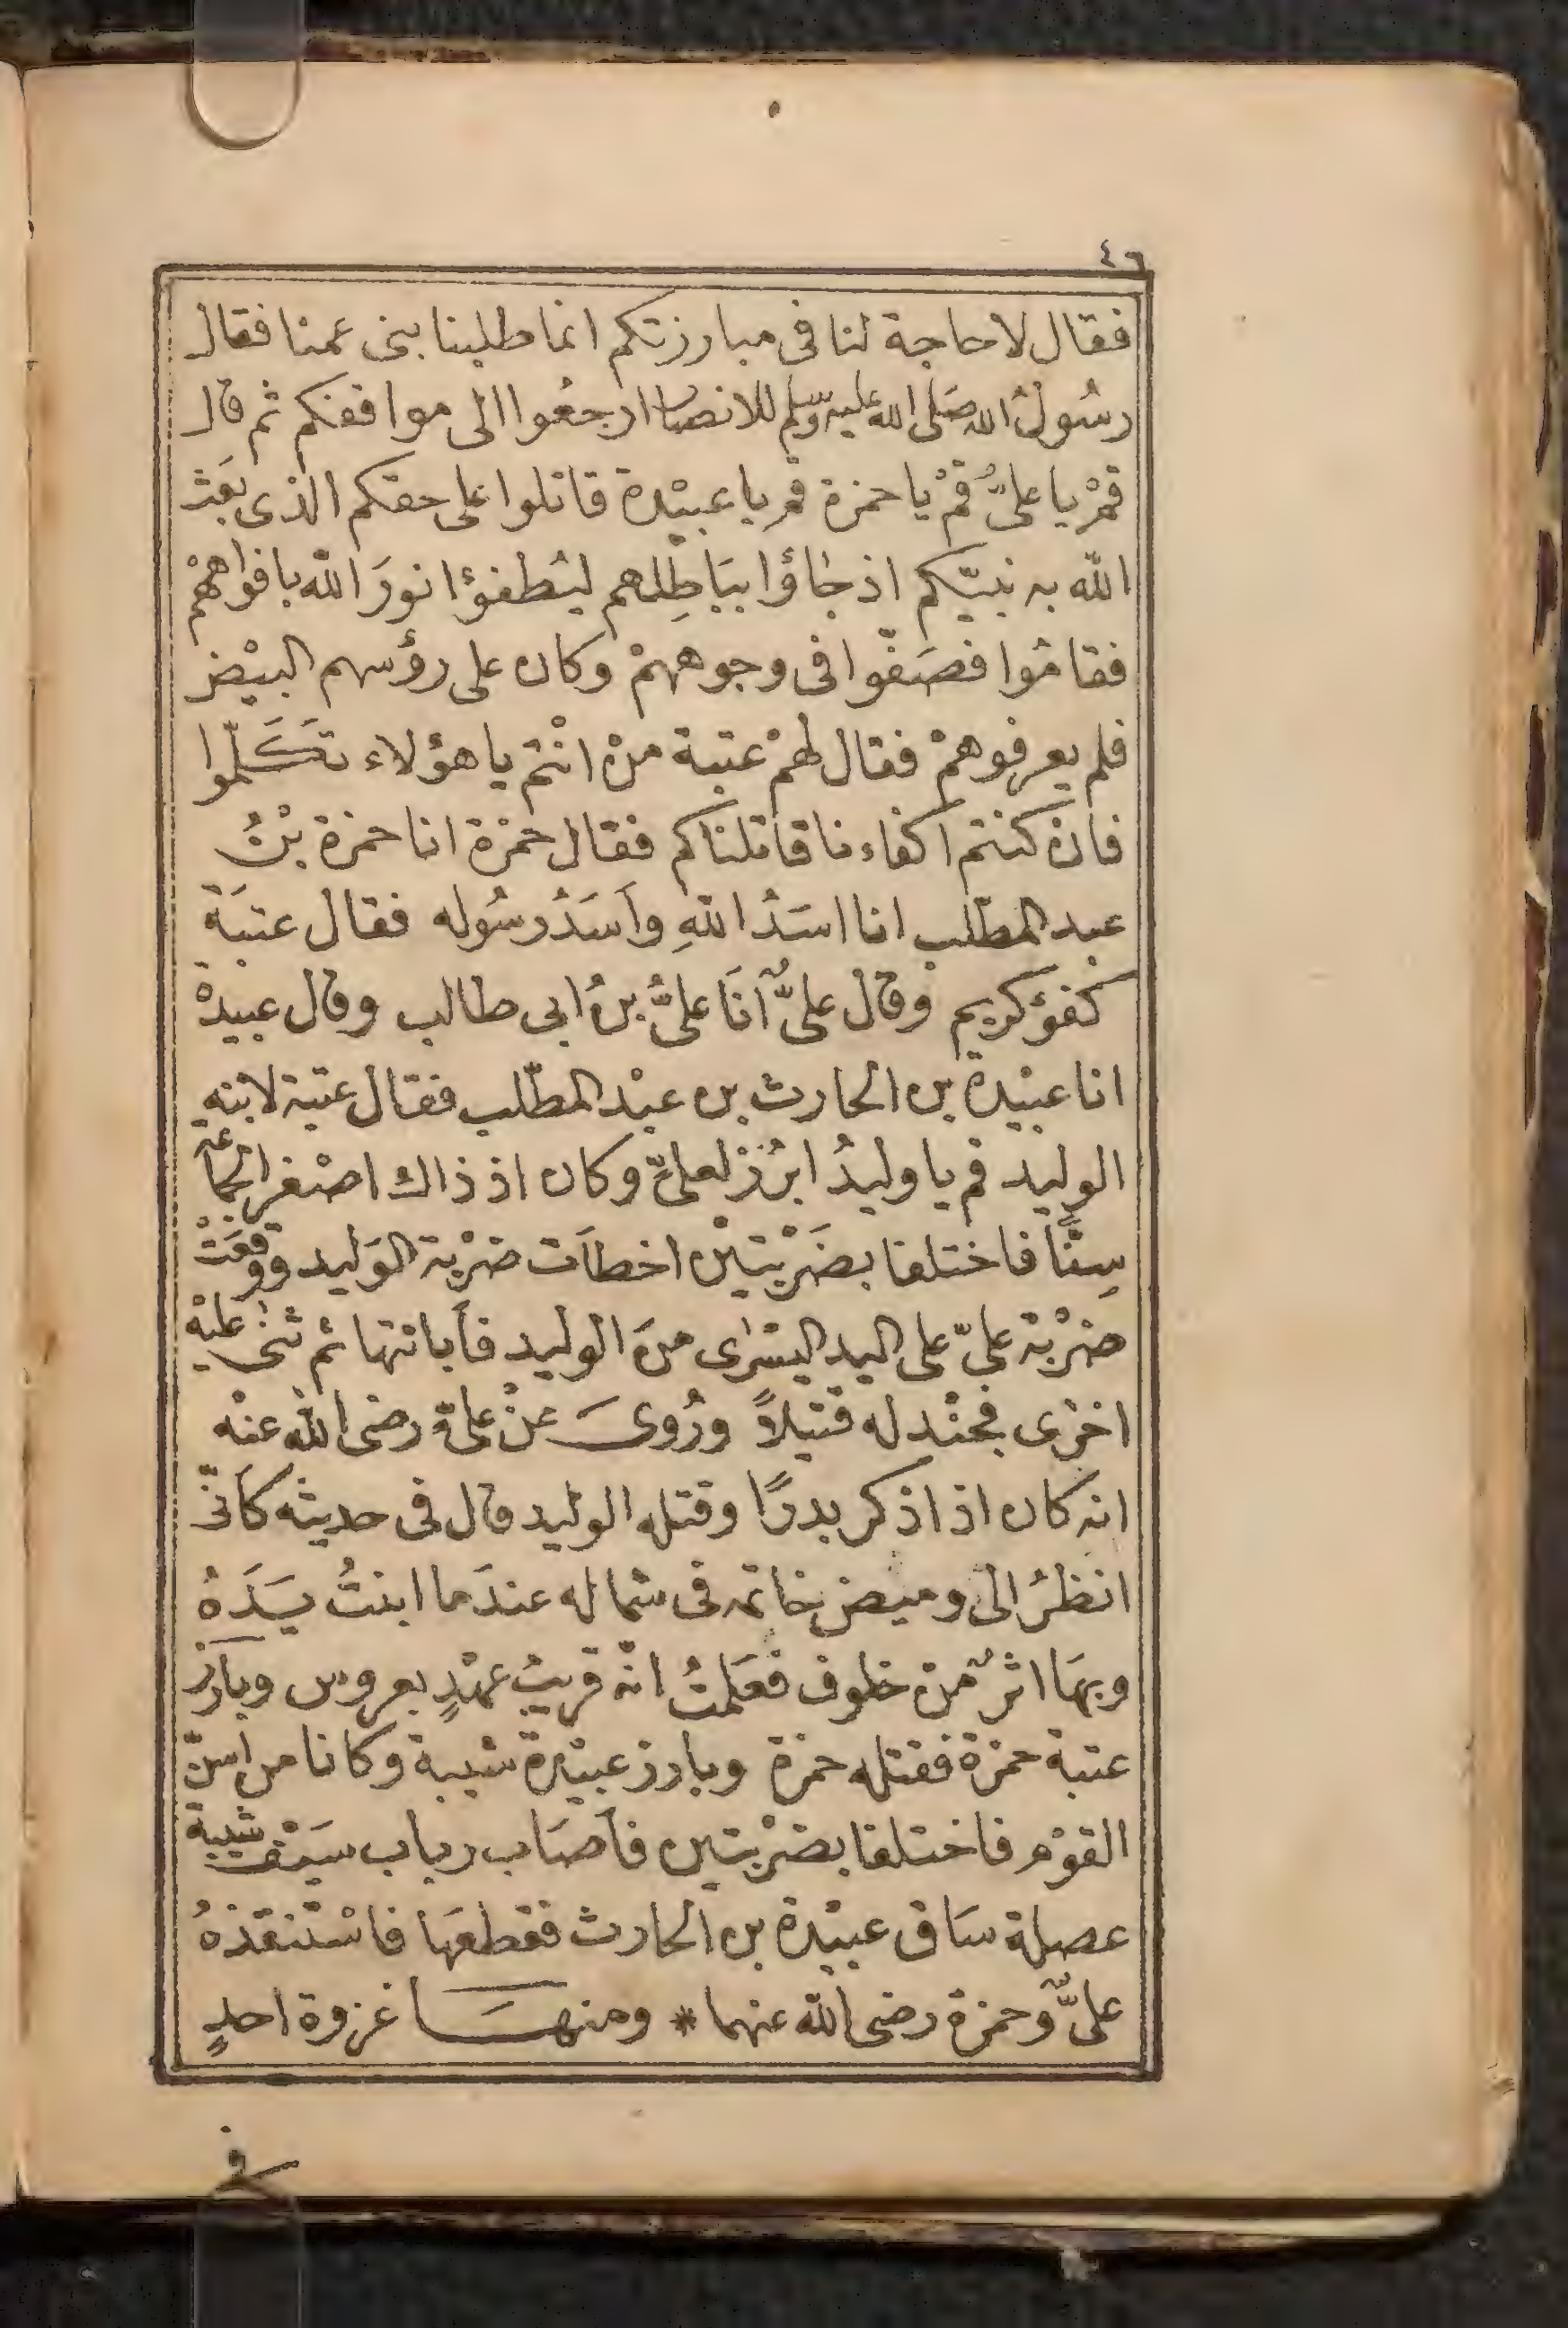 ٤٦
فقال لا حاجة لنا فى مبارزتكم انما طلبنا بنى عمنا فقال
رسُولُ الله صَلى الله عليه وسّلم للانصار ارجعُوا الى مواقفكم ثم قال
قمْ يا علىُّ قمْ يا حمزة قم يا عبيْدة قاتلوا على حقكم الذى بعَث
الله به نبيّكم اذ جاؤا ببَاطِلهم ليُطفؤا نورَ الله بافواههمْ
فقامُوا فصَفّوا فى وجوههمْ وكان على رؤسهم البيْض
فلم يعرفوهمْ فقال لهمْ عتبة منْ انْتم يا هؤلاء تكَلّموا
فانْ كنتم اكفاءنا قاتلناكم فقال حمْزة انا حمزة بْنُ
عبد المطّلب انا اسَدُ اللهِ وأسَدُ رسُوله فقال عتبَة
كفؤ كريم وقال علىٌّ أنَا علىُّ بنُ ابى طالب وقال عبيدة
انا عبيْدة بن الحارث بن عبْد المطّلب فقال عتبة لابنه
الوليد قم يا وليدُ ابرُزْ لعلىّ وكان اذ ذاك اصْغر الجماعة
سِنًّا فاختلفا بضَرْبتيْن اخطأت ضرْبة الوَليد ووقعَتْ
ضرْبة علىّ على اليد اليسْرٰى منَ الوليد فأبانتها ثم ثنى عليْه
اخرٰى فجنْدله قتيلاً ورُوىَ عنْ علىّ رضى الله عنْه
انه كان اذا ذكر بدرًا وقتله الوليد قال فى حديثه كأنّى
انظرُ الى وميض خاتمه فى شماله عندَما ابنتُ يَدَهُ
وبهَا اثرٌ منْ خلوف فعَلمتُ انّه قريبُ عهْدٍ بعروس وبارَز
عتبة حمزة فقتله حمزة وبارز عبيْدة شيبة وكانا من اسنّ
القوْم فاختلفا بضرْبتين فأصَاب رباب سَيْف شيبة
عصلة سَاق عبيْدة بن الحارث فقطعَها فاسْتنقذهُ
علىٌّ وحمزة رضى الله عنهما * ومنهَا غزوة احدٍ
فى